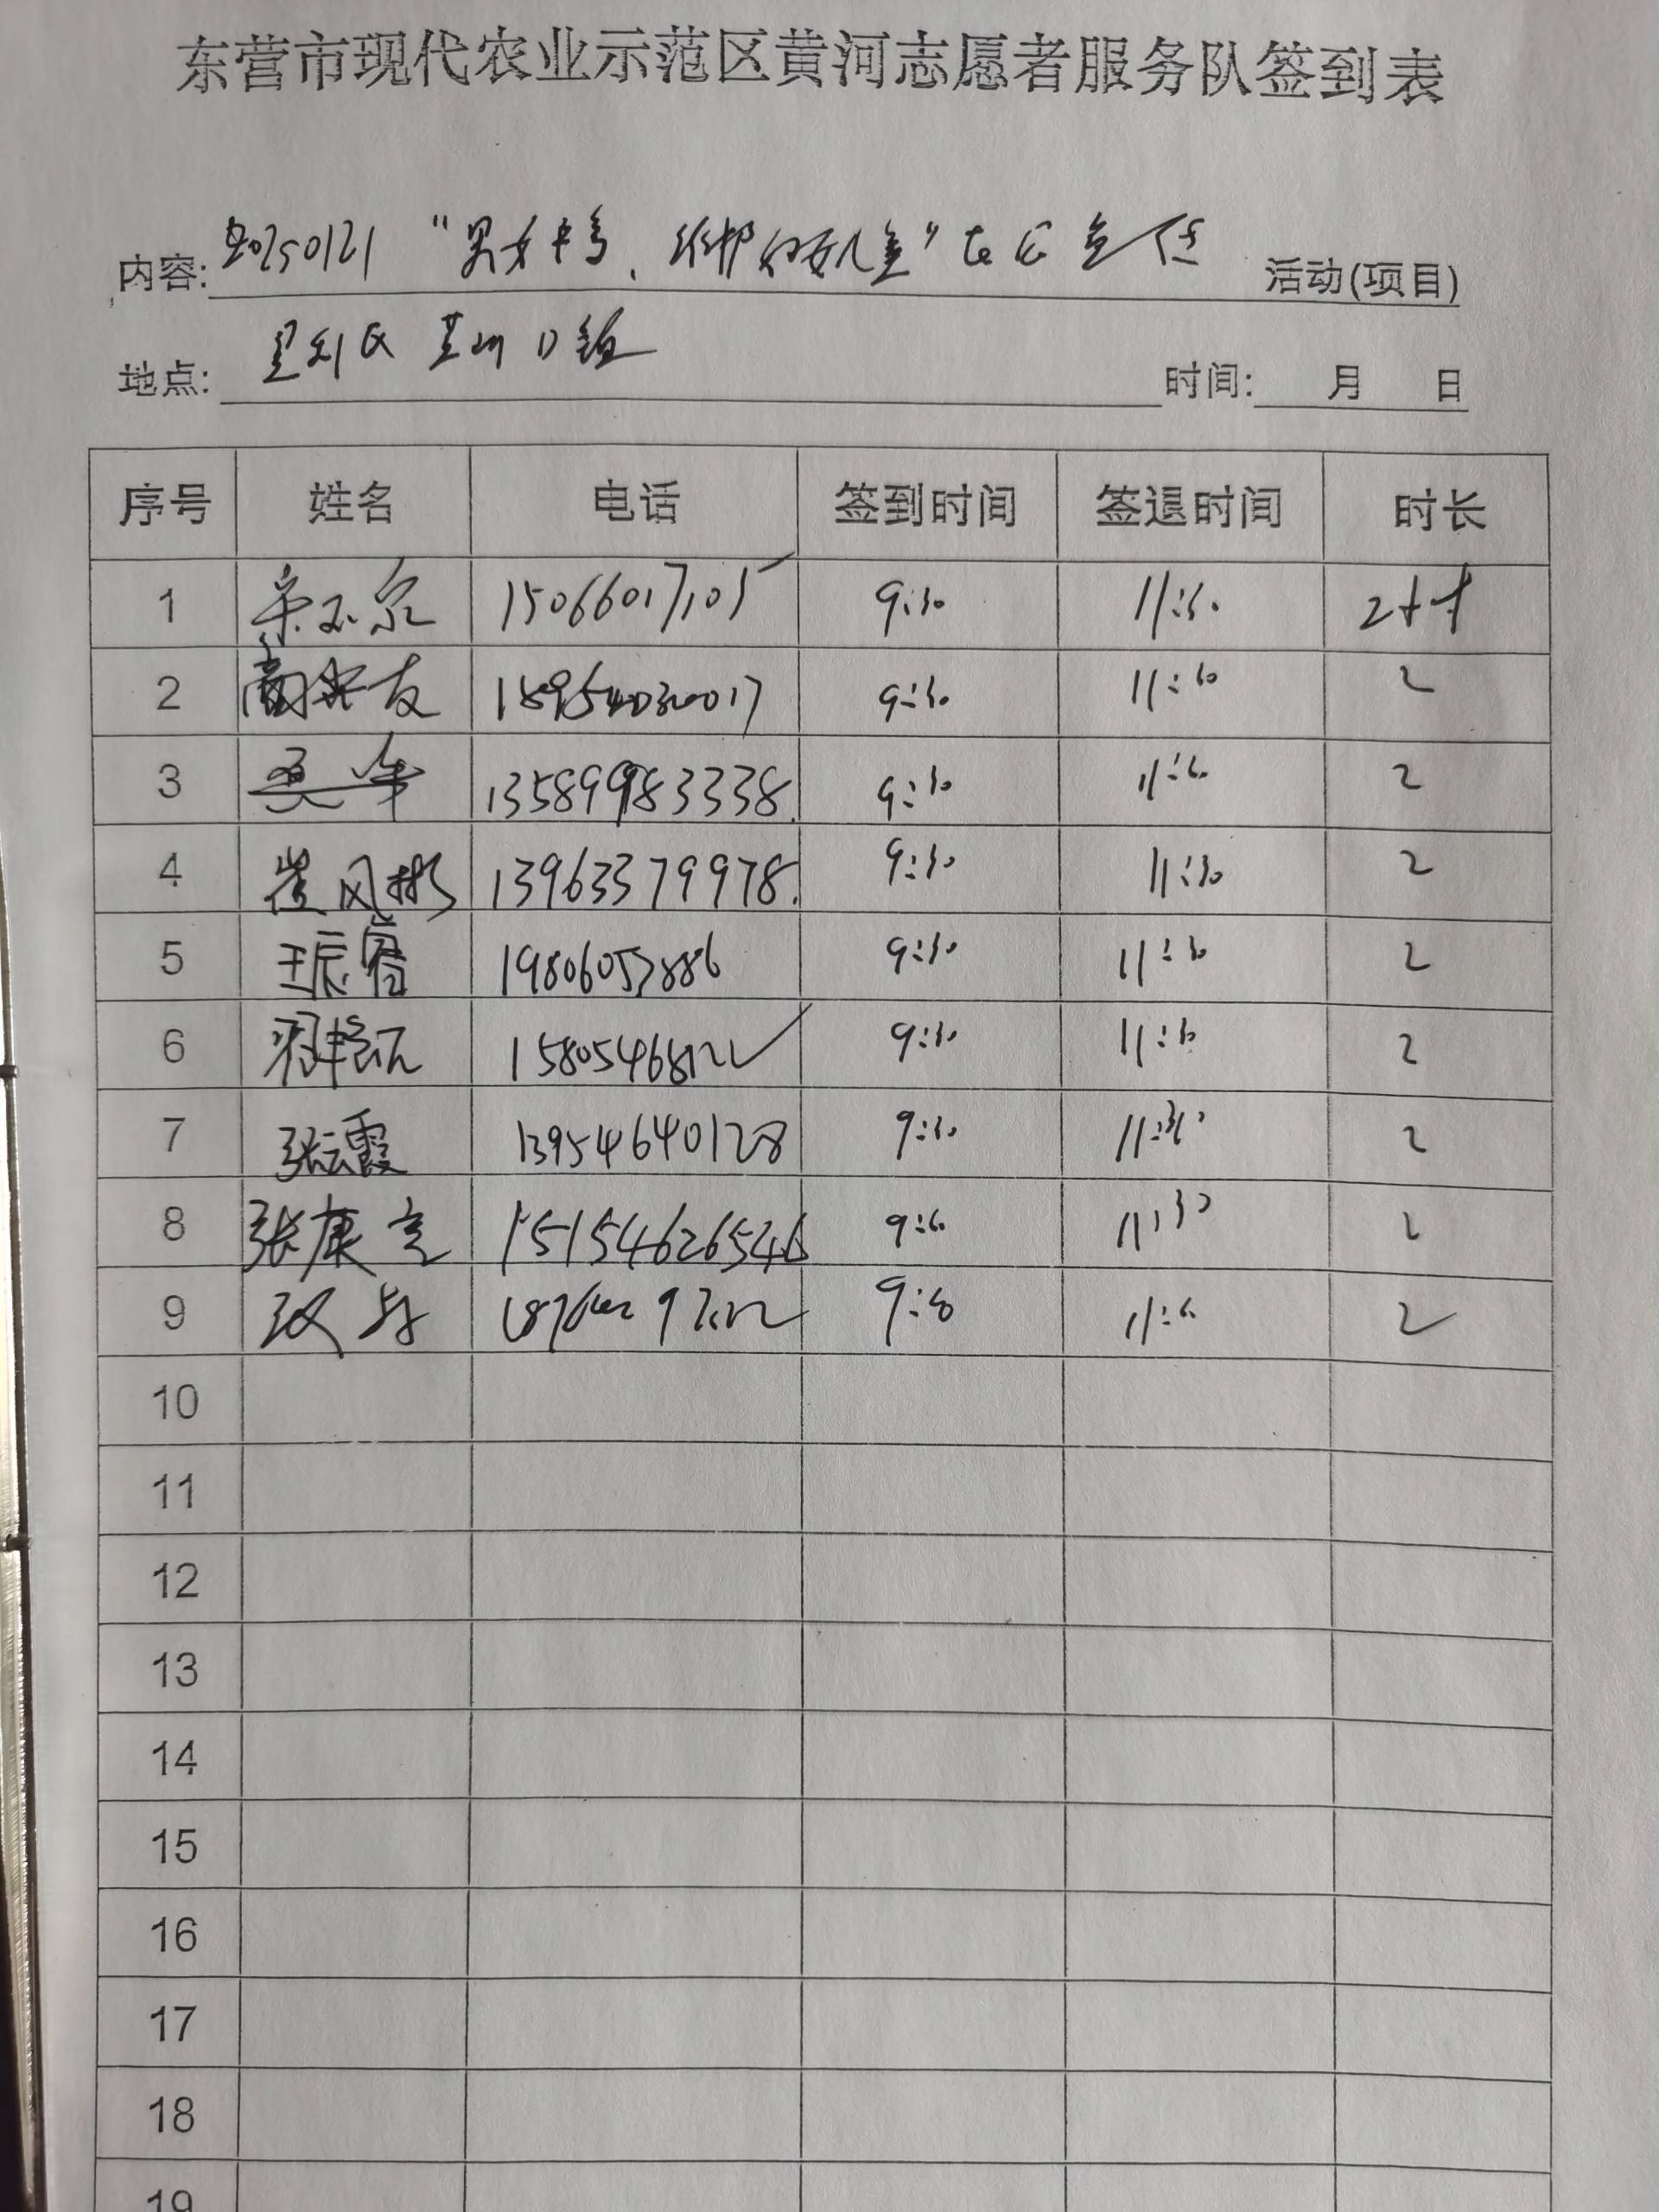 东营市现代农业示范区黄河志愿者服务队签到表
内容: 20250121 “男女平等、 ” 宣传 活动(项目)
地点: 垦利区 黄河口镇 时间: 月 日
序号 姓名 电话 签到时间 签退时间 时长
1 15066017105 9:30 11:30 2小时
2 友 9:30 11:30 2
3 13589983338 9:30 11:30 2
4 崔风彬 13963379978 9:30 11:30 2
5 王辰睿 19806057886 9:30 11:30 2
6 15805468122 9:30 11:30 2
7 张云霞 13954640128 9:30 11:30 2
8 张康亮 15154626546 9:30 11:30 2
9 9:30 11:30 2
10
11
12
13
14
15
16
17
18
19